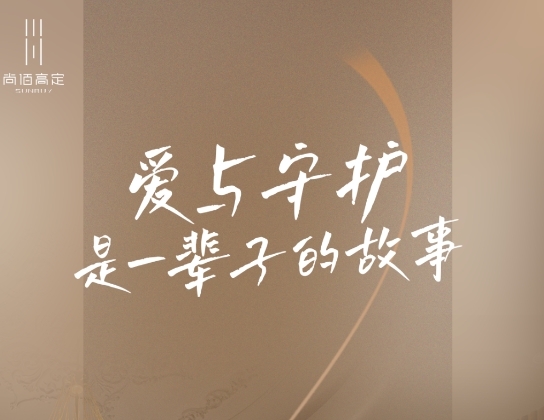 尚佰高定
爱与守护
是一辈子的故事